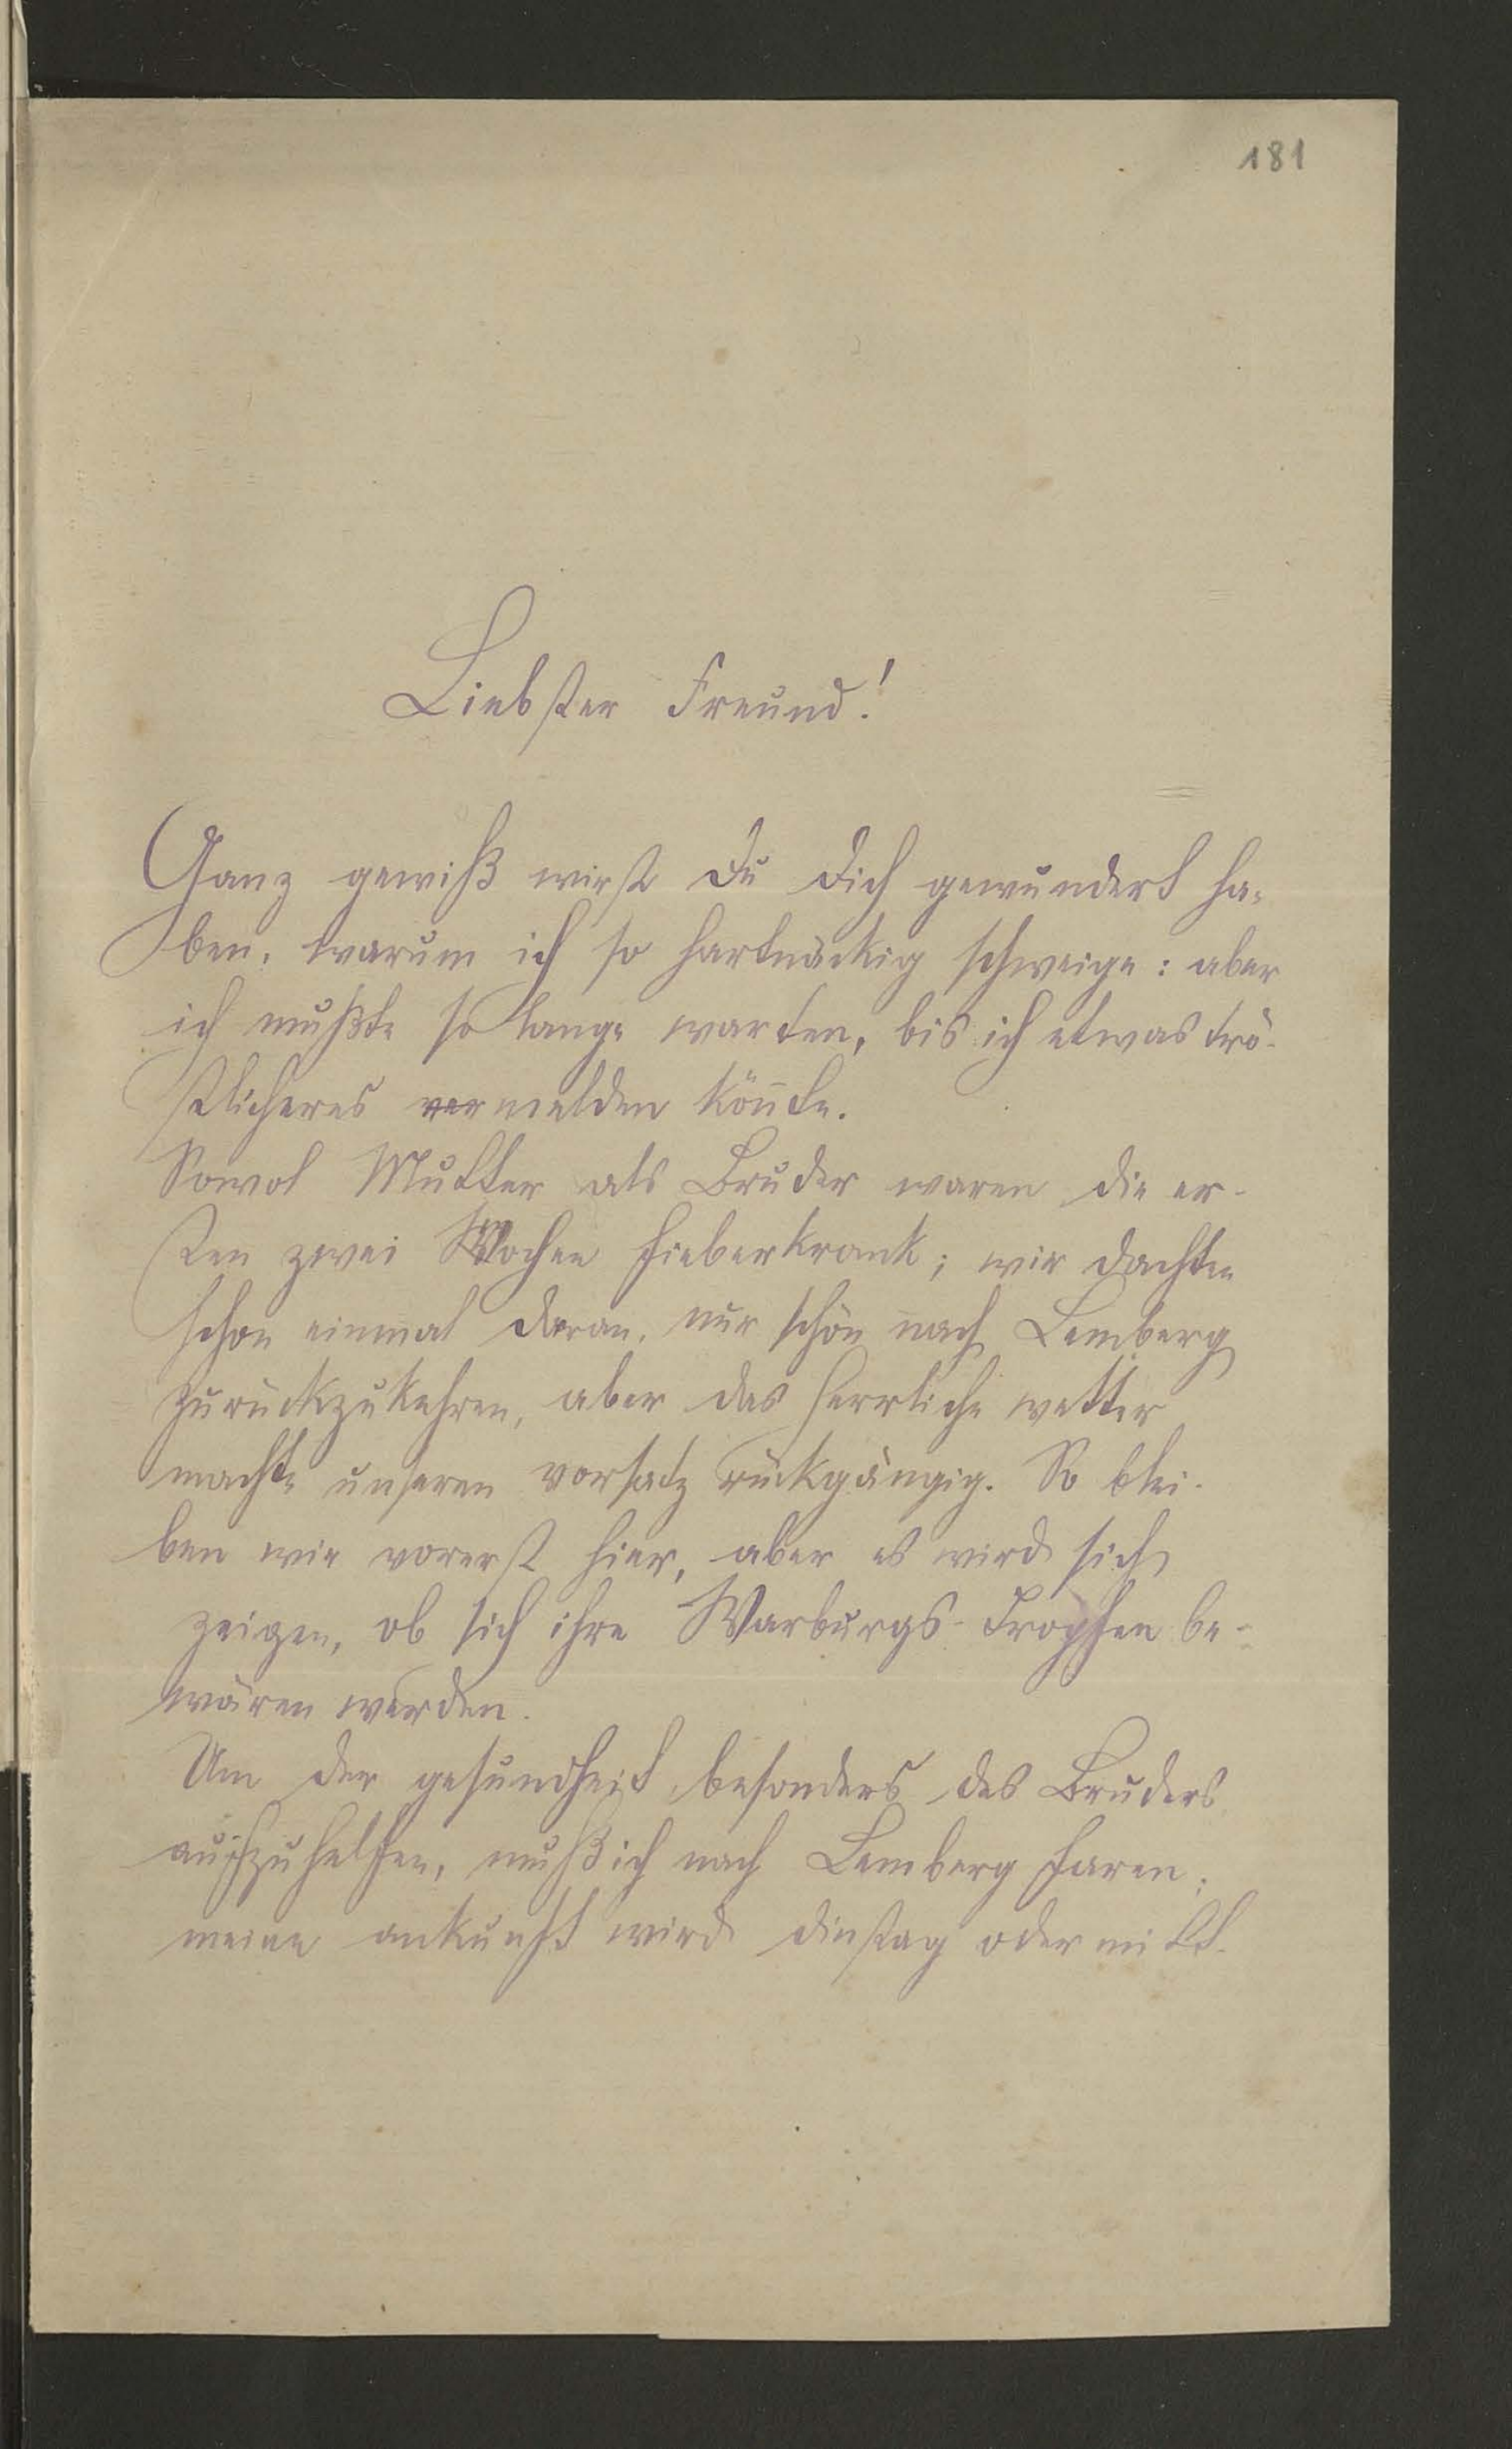 181
Liebster Freund!
Ganz gewiß wirst Du Dich gewundert ha-
ben, warum ich so hartnäckig schweige: aber
ich mußte so lange warten, bis ich etwas trö-
stlicheres vermelden könnte.
Sowol Mutter als Bruder waren die er-
sten zwei Wochen fieberkrank; wir dachten
schon einmal daran, nur schön nach Lemberg
zurückzukehren, aber das herrliche wetter
machte unseren vorsatz rückgängig. So blei-
ben wir vorerst hier, aber es wird sich
zeigen, ob sich ihre Warburgs-Tropfen be-
wären werden.
Um der gesundheit besonders des Bruders
aufzuhelfen, muß ich nach Lemberg faren;
meine ankunft wird dinstag oder mitt-